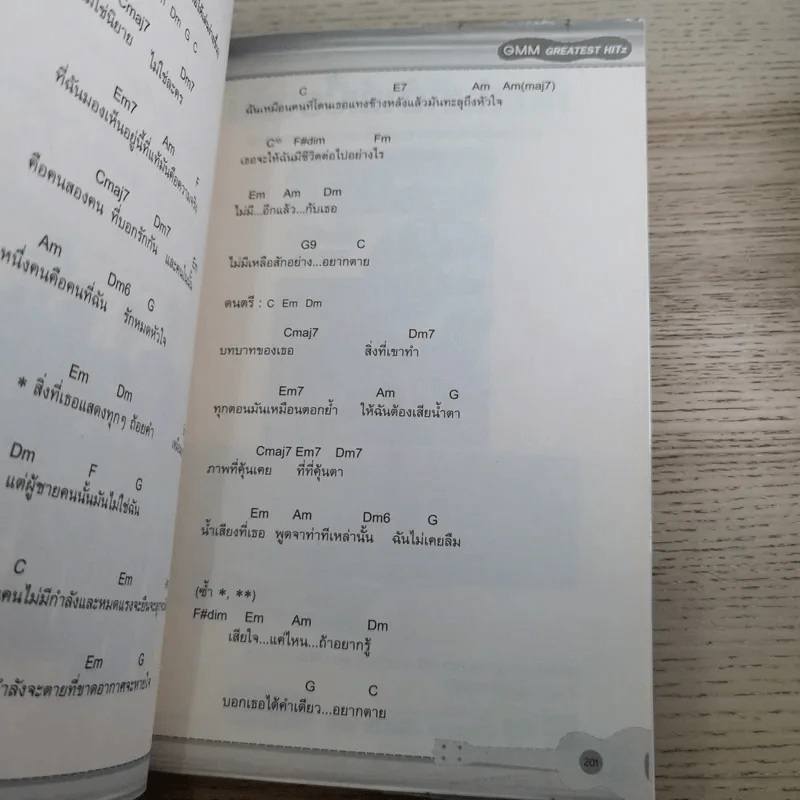 Cmaj7 Dm G C
ไม่ใช่นิยาย ไม่ใช่ละคร
Em7 Am Dm7
ที่ฉันมองเห็นอยู่นี้ที่แท้มันคือความจริง
Cmaj7 Dm7 F
คือคนสองคน ที่บอกรักกัน
Am Dm6 G Em
หนึ่งคนคือคนที่ฉัน รักหมดหัวใจ
Em Dm
* สิ่งที่เธอแสดงทุกๆ ถ้อยคำ
Dm F G
แต่ผู้ชายคนนั้นมันไม่ใช่ฉัน
C Em
คนไม่มีกำลังและหมดแรงจะยืน
Em G
กำลังจะตายที่ขาดอากาศจะหายใจ
GMM GREATEST HITz
C E7 Am Am(maj7)
ฉันเหมือนคนที่โดนเธอแทงข้างหลังแล้วมันทะลุถึงหัวใจ
F#dim Fm
เธอจะให้ฉันมีชีวิตต่อไปอย่างไร
Em Am Dm
ไม่มี...อีกแล้ว...กับเธอ
G9 C
ไม่มีเหลือสักอย่าง...อยากตาย
ดนตรี : C Em Dm
Cmaj7 Dm7
บทบาทของเธอ สิ่งที่เขาทำ
Em7 Am G
ทุกตอนมันเหมือนตอกย้ำ ให้ฉันต้องเสียน้ำตา
Cmaj7 Em7 Dm7
ภาพที่คุ้นเคย ที่ที่คุ้นตา
Em Am Dm6 G
น้ำเสียงที่เธอ พูดจาท่าทีเหล่านั้น ฉันไม่เคยลืม
(ซ้ำ *, **)
F#dim Em Am Dm
เสียใจ...แค่ไหน...ถ้าอยากรู้
G C
บอกเธอได้คำเดียว...อยากตาย
201